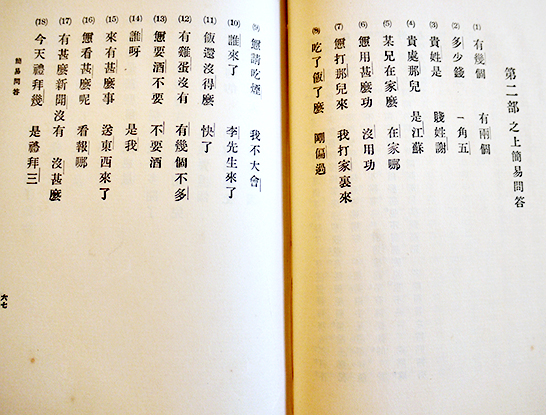 第二部 之上簡易問答
(1) 有幾個 有兩個
(2) 多少錢 一角五
(3) 貴姓是 賤姓謝
(4) 貴處那兒 是江蘇
(5) 某兄在家麼 在家哪
(6) 您用甚麼功 沒用功
(7) 您打那兒來 我打家裏來
(8) 吃了飯了麼 剛偏過
(9) 您請吃煙 我不大會
(10) 誰來了 李先生來了
(11) 飯還沒得麼 快了
(12) 有雞蛋沒有 有幾個不多
(13) 您要酒不要 不要酒
(14) 誰呀 是我
(15) 來有甚麼事 送東西來了
(16) 您看甚麼呢 看報哪
(17) 有甚麼新聞沒有 沒甚麼
(18) 今天禮拜幾 是禮拜三
簡易問答
六七